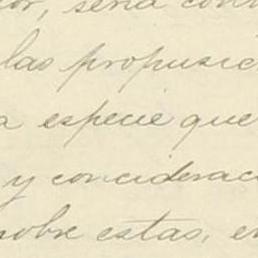 or, seria con
las propusic
a especie que
y concideraci
sobre estas, en